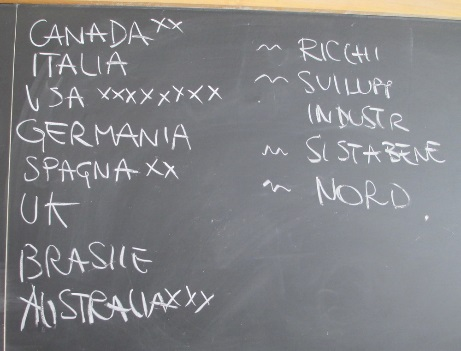 CANADA xx
ITALIA
USA xxxxxxxx
GERMANIA
SPAGNA xx
UK
BRASILE
AUSTRALIA xxx
~ RICCHI
~ SVILUPP
INDUSTR
~ SI STA BENE
~ NORD